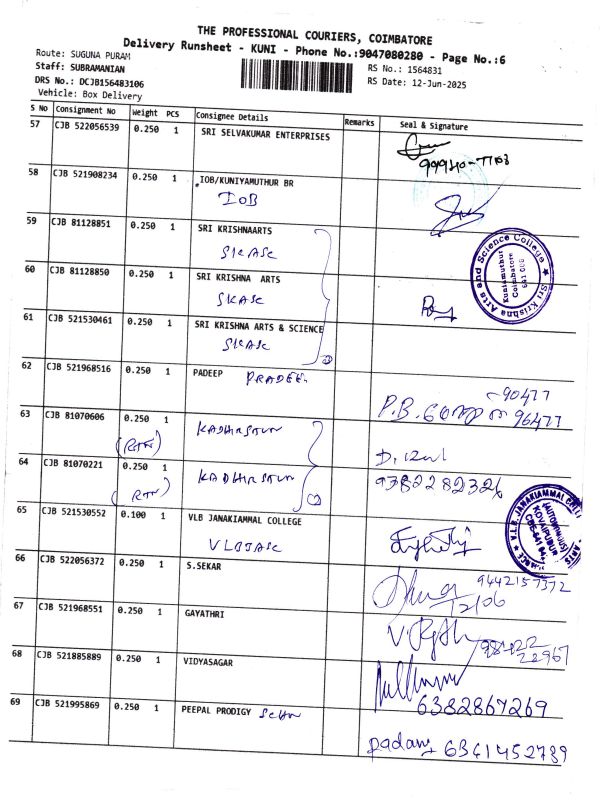 THE PROFESSIONAL COURIERS, COIMBATORE
Delivery Runsheet - KUNI - Phone No.:9047080280 - Page No.:6
Route: SUGUNA PURAM
RS No.: 1564831
Staff: SUBRAMANIAN
RS Date: 12-Jun-2025
DRS No.: DCJB156483106
Vehicle: Box Delivery
S No Consignment No Weight PCS Consignee Details Remarks Seal & Signature
57 CJB 522056539 0.250 1 SRI SELVAKUMAR ENTERPRISES
58 CJB 521908234 0.250 1 IOB/KUNIYAMUTHUR BR
IOB
59 CJB 81128851 0.250 1 SRI KRISHNAARTS
SKASC
Sri Krishna Arts and Science College
Kuniamuthur
Coimbatore
641 008
60 CJB 81128850 0.250 1 SRI KRISHNA ARTS
SKASC
61 CJB 521530461 0.250 1 SRI KRISHNA ARTS & SCIENCE
SKASC
62 CJB 521968516 0.250 1 PADEEP
63 CJB 81070606 0.250 1 KADHIRSTUN
(RTN)
64 CJB 81070221 0.250 1 KADHIRSTUN
9382282326
(RTN)
65 CJB 521530552 0.100 1 VLB JANAKIAMMAL COLLEGE
V.L.B. JANAKIAMMAL
(AUTONOMOUS)
KOVAIPUDUR
66 CJB 522056372 0.250 1 S.SEKAR
9442157372
12/06
67 CJB 521968551 0.250 1 GAYATHRI
68 CJB 521885889 0.250 1 VIDYASAGAR
6382867269
69 CJB 521995869 0.250 1 PEEPAL PRODIGY
6361452789